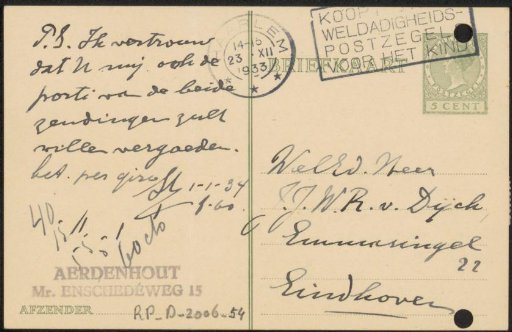 P.S. Ik vertrouw
dat U mij ook de
porti van de beide
zendingen zult
willen vergoeden.
bet. per giro
1-1-34
f.60
40
AERDENHOUT
Mr. ENSCHEDÉWEG 15
AFZENDER
RP-D-2006-54
14-15
23 XII
1933
KOOP
WELDADIGHEIDS-
POSTZEGEL
VOOR HET KIND
BRIEFKAART
5 CENT
WelEd. Heer
J.W.R. v. Dijck
Emmasingel
22
Eindhoven